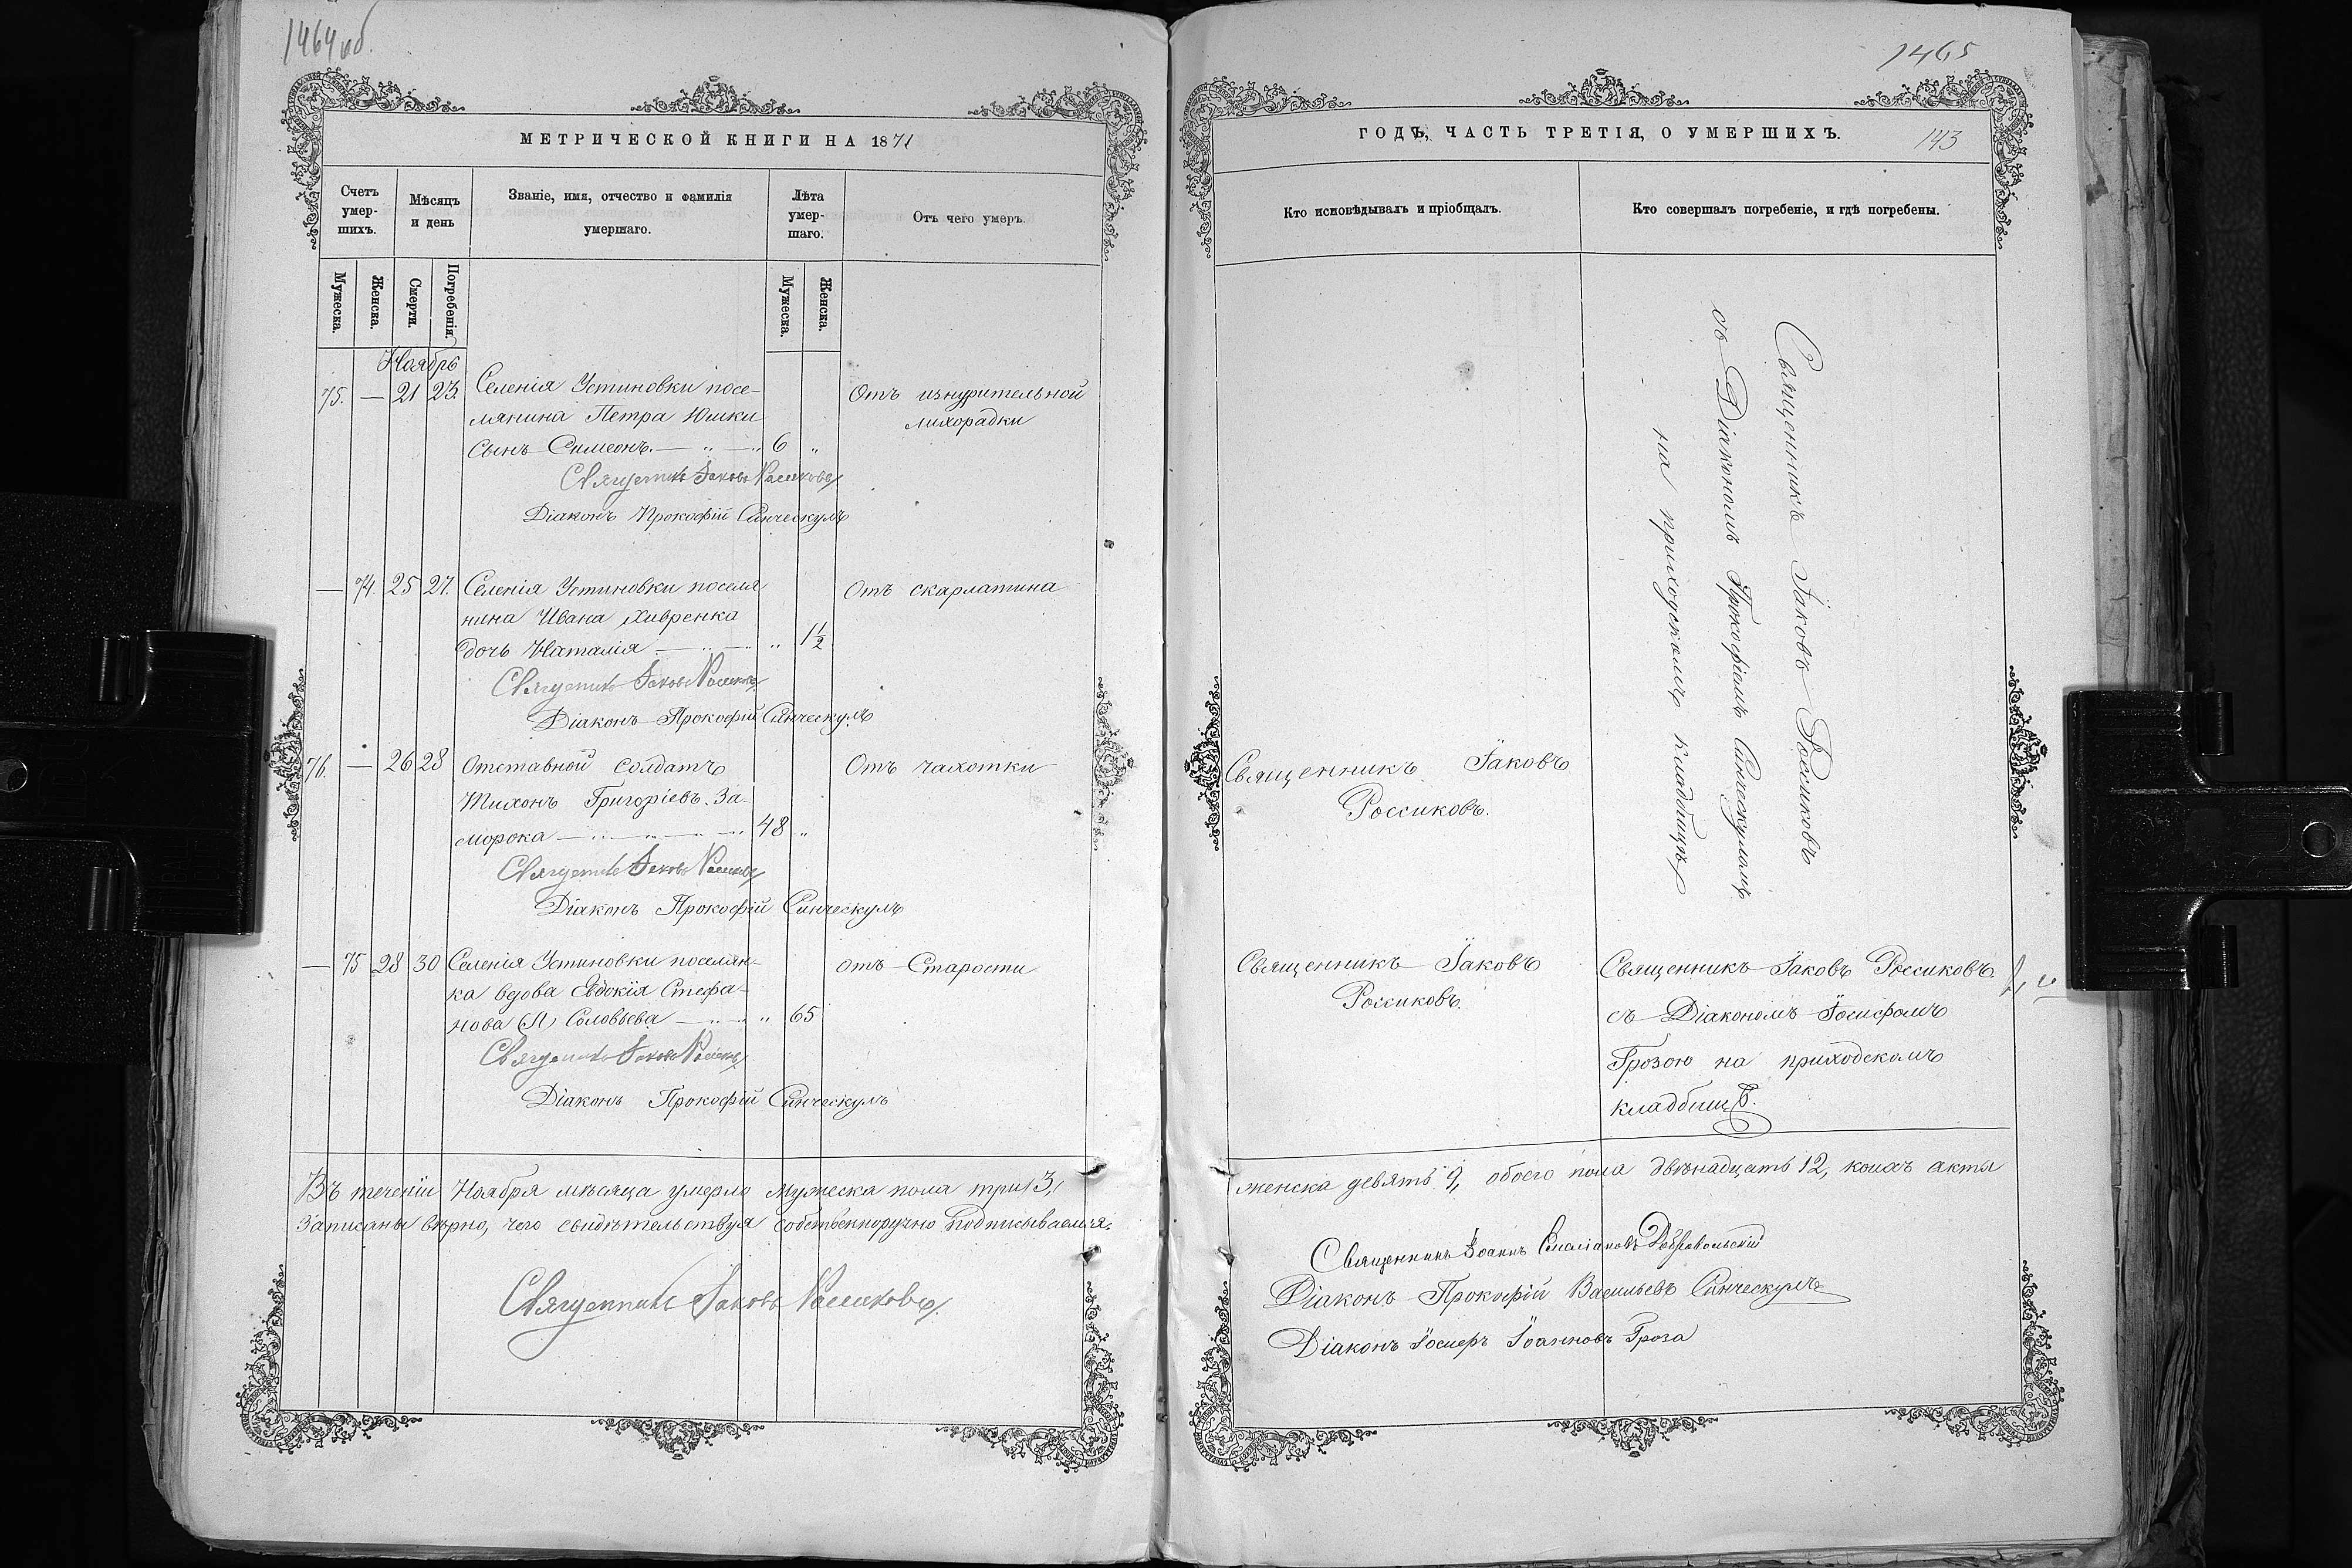 1464 об.
МЕТРИЧЕСКОЙ КНИГИ НА 1871
Счетъ умер-шихъ.
Мѣсяцъ и день
Званіе, имя, отчество и фамилія умершаго.
Лѣта умер-шаго.
Отъ чего умеръ.
Мужеска.
Женска.
Смерти.
Погребенія.
Мужеска.
Женска.
Ноябрь
75. — 21 23. Селенія Устиновки посе- Отъ изнурительной
лянина Петра Юшки лихорадки
Сынъ Симеонъ. — „ — „ 6 „
Священникъ Іаковъ Россиковъ
Діаконъ Прокофій Синческулъ
— 74. 25 27. Селенія Устиновки поселя Отъ скарлатина
нина Ивана Хивренка
дочь Наталія — „ — „ 1 1/2
Священникъ Іаковъ Россиковъ
Діаконъ Прокофій Синческулъ
76. — 26 28 Отставной солдатъ Отъ чахотки
Тихонъ Григоріевъ За-
морока — „ — „ — „ 48 „
Священникъ Іаковъ Россиковъ
Діаконъ Прокофій Синческулъ
— 75 28 30 Селенія Устиновки поселян- отъ Старости
ка вдова Евдокія Стефа-
нова (Л) Соловьева — „ — „ 65
Священникъ Іаковъ Россиковъ
Діаконъ Прокофій Синческулъ
Въ теченіи Ноября мѣсяца умерло мужеска пола три 3,
записаны вѣрно, чего свидѣтельствуя собственноручно подписываемся.
Священникъ Іаковъ Россиковъ
1465
ГОДЪ, ЧАСТЬ ТРЕТІЯ, О УМЕРШИХЪ.
143
Кто исповѣдывалъ и пріобщалъ.
Кто совершалъ погребеніе, и гдѣ погребены.
Священникъ Іаковъ Россиковъ
съ Діакономъ Прокофіемъ Синческуломъ
на приходскомъ кладбищѣ
Священникъ Іаковъ
Россиковъ.
Священникъ Іаковъ
Россиковъ.
Священникъ Іаковъ Россиковъ
съ Діакономъ Іосифомъ
Грозою на приходскомъ
кладбищѣ.
женска девять 9, обоего пола двѣнадцать 12, коихъ акты
Священникъ Іоаннъ Добровольскій
Діаконъ Прокофій Васильевъ Синческулъ
Діаконъ Іосифъ Іоанновъ Гроза